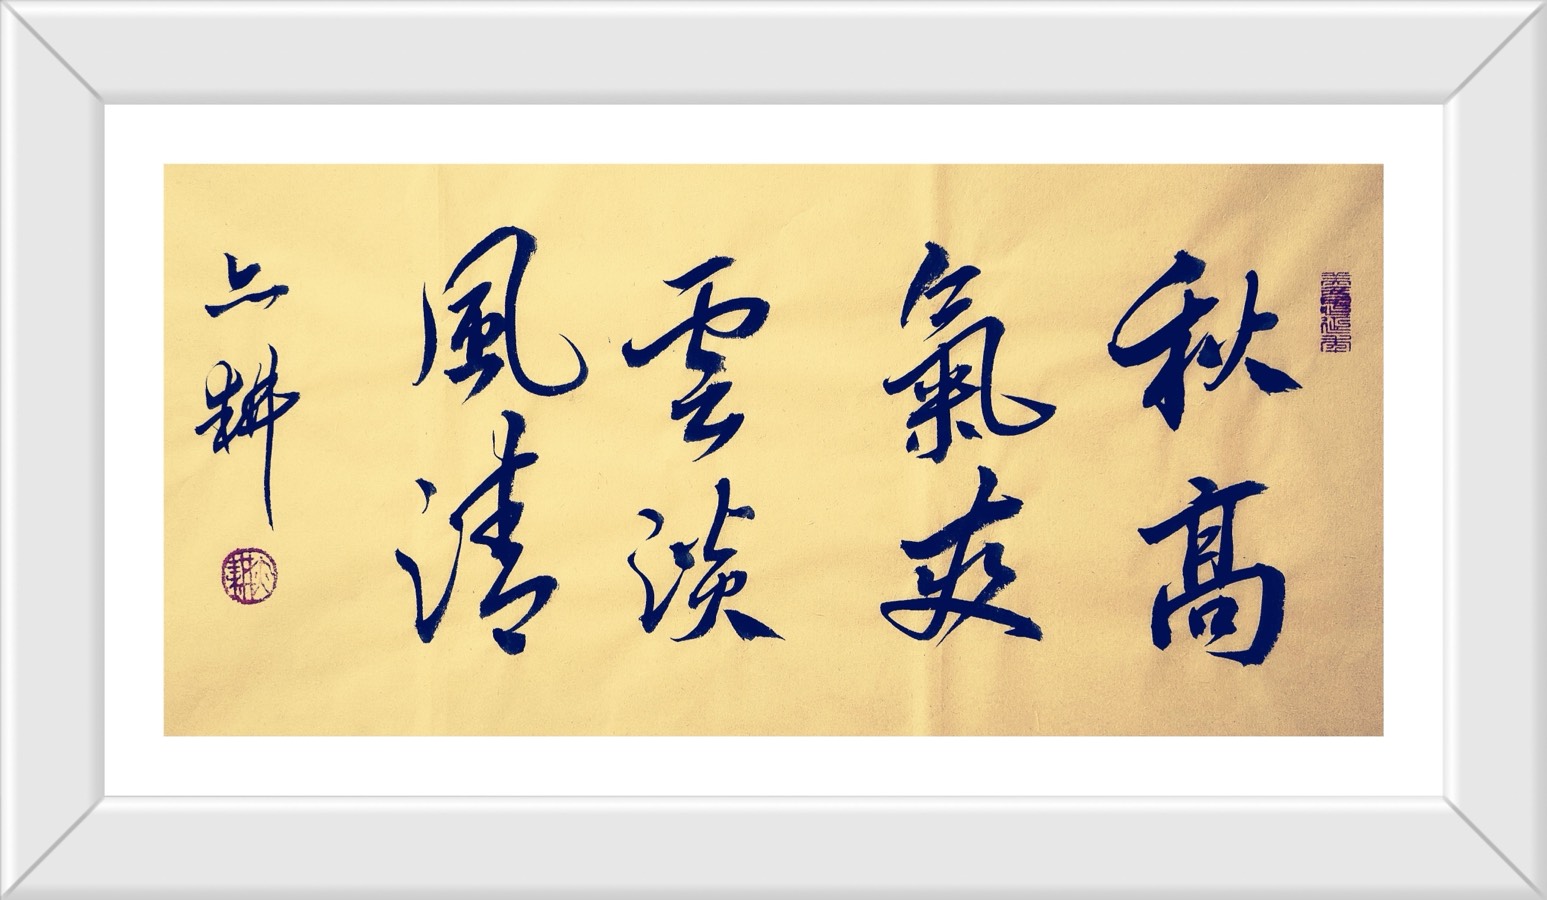 秋高
氣爽
雲淡
風清
亦耕